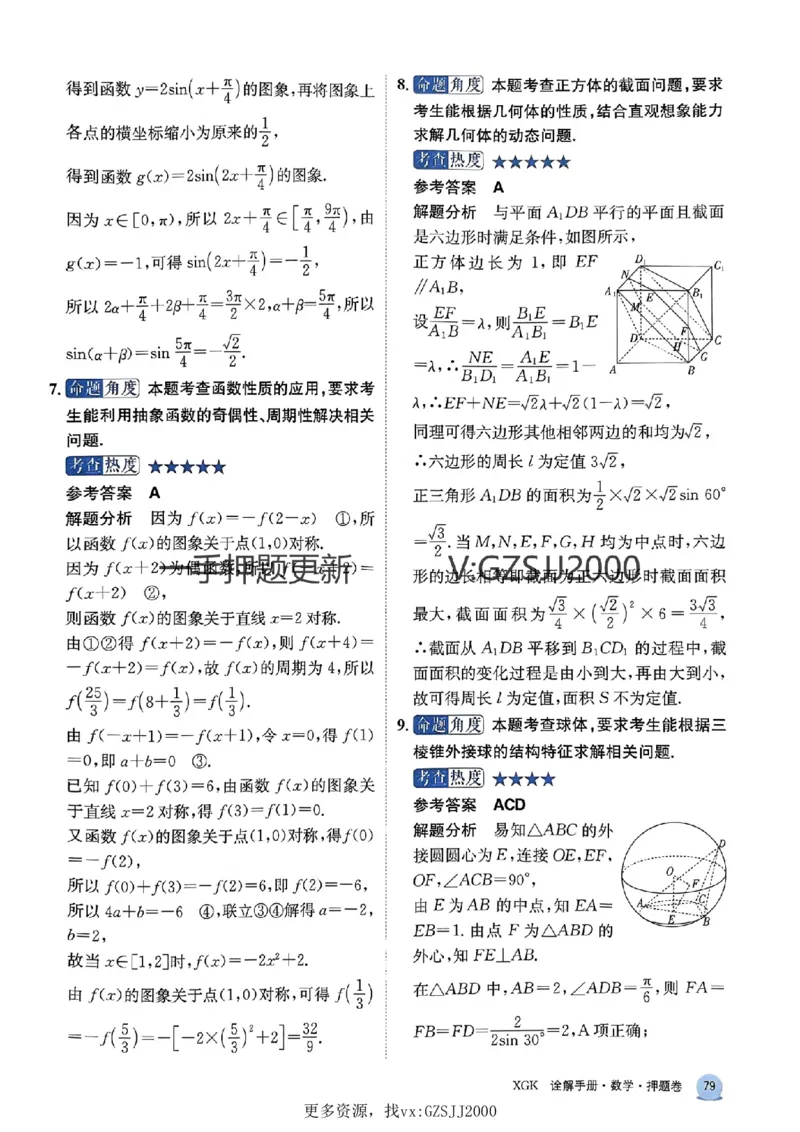 得到函数 y=2sin(x+π/4)的图象,再将图象上
各点的横坐标缩小为原来的1/2,
得到函数 g(x)=2sin(2x+π/4)的图象.
因为 x∈[0,π),所以 2x+π/4∈[π/4,9π/4),由
g(x)=-1,可得 sin(2x+π/4)=-1/2,
所以 2α+π/4+2β+π/4=3π/2×2,α+β=5π/4,所以
sin(α+β)=sin 5π/4=-√2/2.
7. 命题角度 本题考查函数性质的应用,要求考
生能利用抽象函数的奇偶性、周期性解决相关
问题.
考查热度 ★★★★★
参考答案 A
解题分析 因为 f(x)=-f(2-x) ①,所
以函数 f(x)的图象关于点(1,0)对称.
因为 f(x+2)为偶函数,所以 f(-x+2)=
f(x+2) ②,
则函数 f(x)的图象关于直线 x=2 对称.
由①②得 f(x+2)=-f(x),则 f(x+4)=
-f(x+2)=f(x),故 f(x)的周期为 4,所以
f(25/3)=f(8+1/3)=f(1/3).
由 f(-x+1)=-f(x+1),令 x=0,得 f(1)
=0,即 a+b=0 ③.
已知 f(0)+f(3)=6,由函数 f(x)的图象关
于直线 x=2 对称,得 f(3)=f(1)=0.
又函数 f(x)的图象关于点(1,0)对称,得f(0)
=-f(2),
所以 f(0)+f(3)=-f(2)=6,即 f(2)=-6,
所以 4a+b=-6 ④,联立③④解得 a=-2,
b=2,
故当 x∈[1,2]时,f(x)=-2x²+2.
由 f(x)的图象关于点(1,0)对称,可得 f(1/3)
=-f(5/3)=-[-2×(5/3)²+2]=32/9.
8. 命题角度 本题考查正方体的截面问题,要求
考生能根据几何体的性质,结合直观想象能力
求解几何体的动态问题.
考查热度 ★★★★★
参考答案 A
解题分析 与平面 A₁DB 平行的平面且截面
是六边形时满足条件,如图所示,
正方体边长为 1,即 EF
∥A₁B,
设EF/A₁B=λ,则B₁E/A₁B₁=B₁E
=λ,∴NE/B₁D₁=A₁E/A₁B₁=1-
λ,∴EF+NE=√2λ+√2(1-λ)=√2,
同理可得六边形其他相邻两边的和均为√2,
∴六边形的周长 l 为定值 3√2,
正三角形 A₁DB 的面积为1/2×√2×√2sin 60°
=√3/2.当 M,N,E,F,G,H 均为中点时,六边
形的边长相等即截面为正六边形时截面面积
最大,截面面积为√3/4×(√2/2)²×6=3√3/4,
∴截面从 A₁DB 平移到 B₁CD₁ 的过程中,截
面面积的变化过程是由小到大,再由大到小,
故可得周长 l 为定值,面积 S 不为定值.
D₁
C₁
N
A₁
E
B₁
M
F
D
H
C
G
A
B
9. 命题角度 本题考查球体,要求考生能根据三
棱锥外接球的结构特征求解相关问题.
考查热度 ★★★★
参考答案 ACD
解题分析 易知△ABC 的外
接圆圆心为 E,连接 OE,EF,
OF,∠ACB=90°,
由 E 为 AB 的中点,知 EA=
EB=1.由点 F 为△ABD 的
外心,知 FE⊥AB.
在△ABD 中,AB=2,∠ADB=π/6,则 FA=
FB=FD=2/(2sin 30°)=2,A 项正确;
D
O
F
A
C
E
B
一手押题更新 V:GZSJJ2000
XGK 诠解手册·数学·押题卷 79
更多资源，找vx:GZSJJ2000